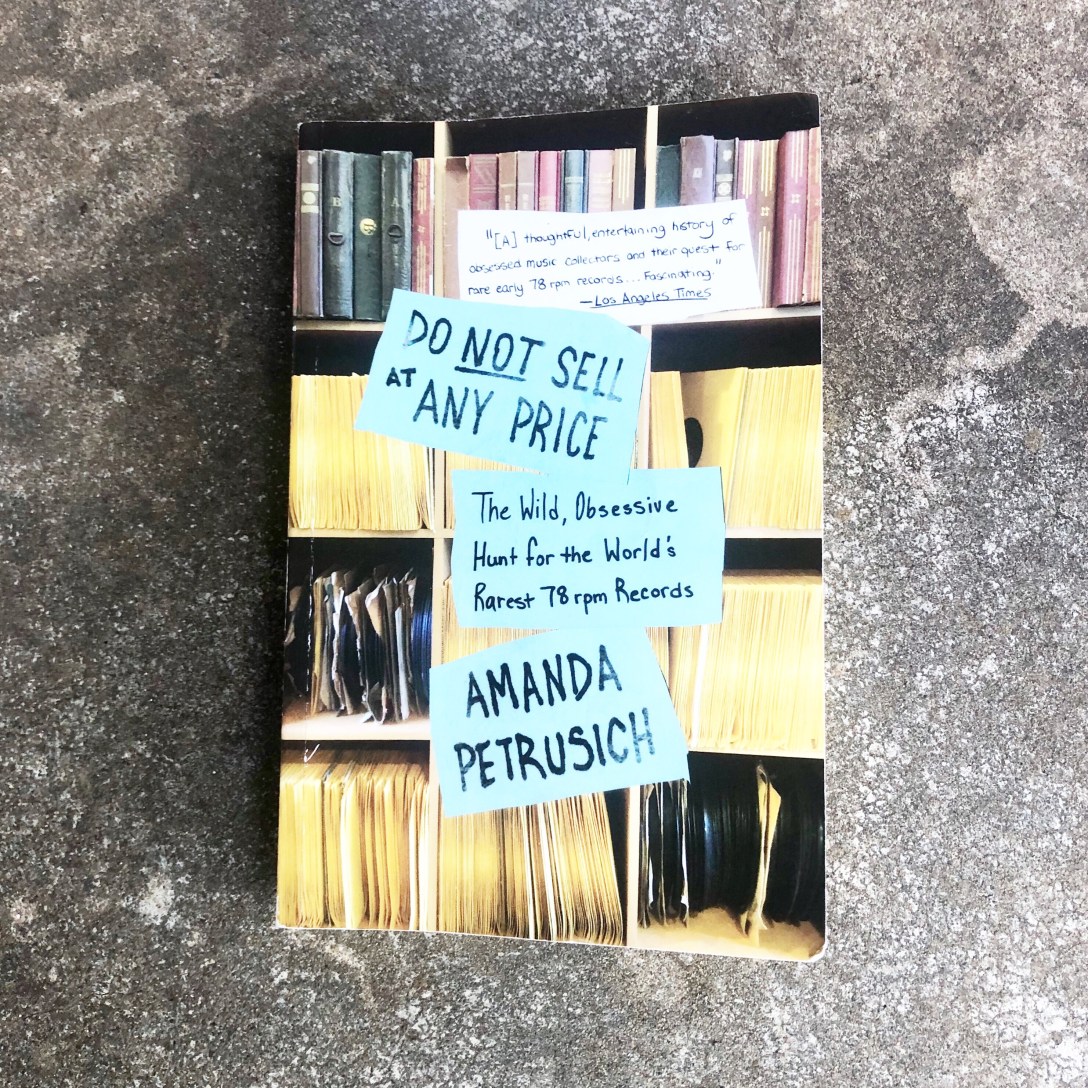 "[A] thoughtful, entertaining history of
obsessed music collectors and their quest for
rare early 78 rpm records... Fascinating."
—Los Angeles Times
DO NOT SELL
AT ANY PRICE
The Wild, Obsessive
Hunt for the World's
Rarest 78 rpm Records
AMANDA
PETRUSICH
B
A